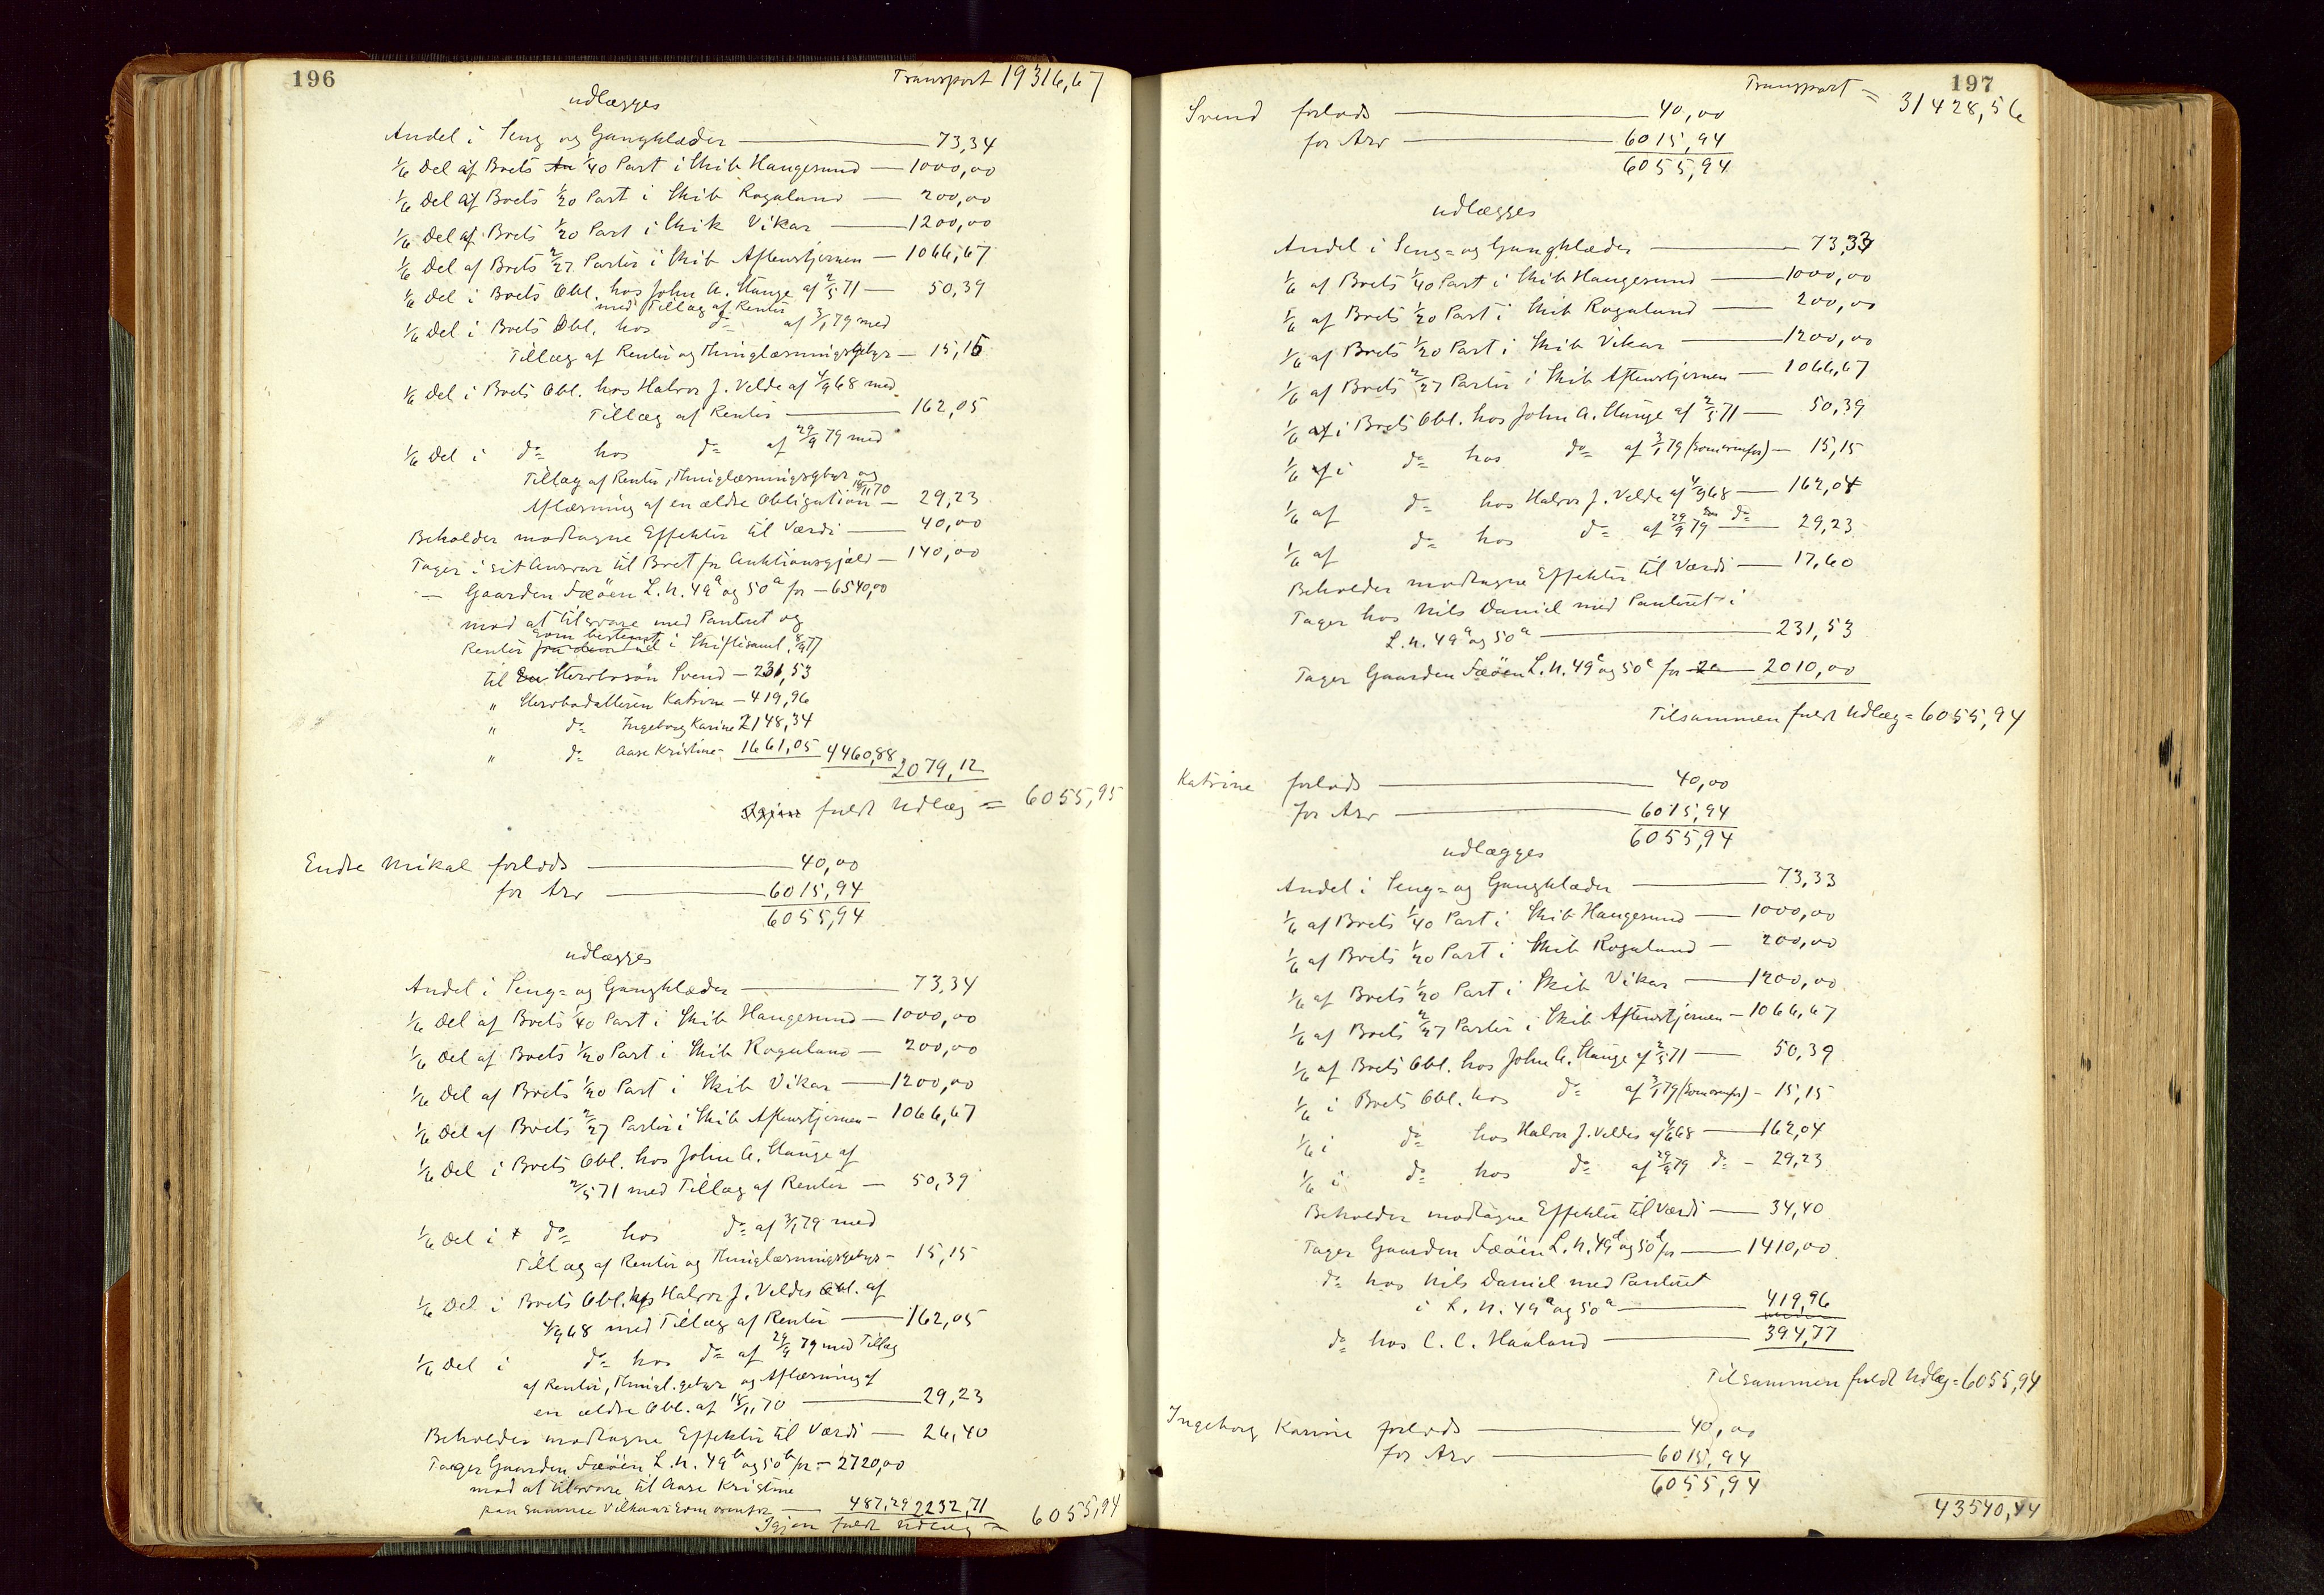 196
Transport 19316,67
udlægges
Andel i Seng og Gangklæder 73,34
1/6 Del af Boets 1/40 Part i Skib Haugesund 1000,00
1/6 Del af Boets 1/20 Part i Skib Rogaland 200,00
1/6 Del af Boets 1/20 Part i Skib Vikar 1200,00
1/6 Del af Boets 2/27 Parter i Skib Aftenstjernen 1066,67
1/6 Del i Boets Obl. hos John A. Hauge af 2/5 71 50,39
med Tillæg af Renter
1/6 Del i Boets Obl. hos do af 3/1 79 med
Tillæg af Renter og Thinglæsningsgebyr 15,15
1/6 Del i Boets Obl. hos Halvor J. Velde af 4/9 68 med
Tillæg af Renter 162,05
1/6 Del i do hos do af 29/9 79 med
Tillæg af Renter, Thinglæsningsgebyr og
Aflæsning af en ældre Obligation 18/11 70 29,23
Beholder modtagne Effekter til Værdi 40,00
Tager i sit Ansvar til Boet for Auktionsgjæld 140,00
— Gaarden Fæøen L. N. 49a og 50a for 6540,00
mod at tilsvare med Panteret og
Renter som bestemt i Skiftesaml. 8/9 77
til Stervbosøn Svend 231,53
" Stervbodatteren Katrine 419,96
" do Ingeborg Karine 2148,34
" do Aase Kristine 1661,05 4460,88
2079,12
fuldt Udlæg = 6055,95
Endre Mikal forlods 40,00
for Arv 6015,94
6055,94
udlægges
Andel i Seng= og Gangklæder 73,34
1/6 Del af Boets 1/40 Part i Skib Haugesund 1000,00
1/6 Del af Boets 1/20 Part i Skib Rogaland 200,00
1/6 Del af Boets 1/20 Part i Skib Vikar 1200,00
1/6 Del af Boets 2/27 Parter i Skib Aftenstjernen 1066,67
1/6 Del i Boets Obl. hos John A. Hauge af
2/5 71 med Tillæg af Renter 50,39
1/6 Del i do hos do af 3/1 79 med
Tillæg af Renter og Thinglæsningsgebyr 15,15
1/6 Del i Boets Obl. hos Halvor J. Veldes Obl. af
4/9 68 med Tillæg af Renter 162,05
1/6 Del i do hos do af 29/9 79 med Tillæg
af Renter, Thingl. gebyr og Aflæsning af
en ældre Obl. af 18/11 70 29,23
Beholder modtagne Effekter til Værdi 26,40
Tager Gaarden Fæøen L. N. 49b og 50b for 2720,00
mod at tilsvare til Aase Kristine
paa samme Vilkaar som ovenfor 487,29 2232,71
Igjen fuldt Udlæg = 6055,94
197
Transport = 31428,56
Svend forlods 40,00
for Arv 6015,94
6055,94
udlægges
Andel i Seng= og Gangklæder 73,33
1/6 af Boets 1/40 Part i Skib Haugesund 1000,00
1/6 af Boets 1/20 Part i Skib Rogaland 200,00
1/6 af Boets 1/20 Part i Skib Vikar 1200,00
1/6 af Boets 2/27 Parter i Skib Aftenstjernen 1066,67
1/6 i Boets Obl. hos John A. Hauge af 2/5 71 50,39
1/6 i do hos do af 3/1 79 (som ovenfor) 15,15
1/6 af do hos Halvor J. Velde af 4/9 68 162,04
1/6 af do hos do af 29/9 79 som do 29,23
Beholder modtagne Effekter til Værdi 17,60
Tager hos Nils Daniel med Panteret i
L. N. 49a og 50a 231,53
Tager Gaarden Fæøen L. N. 49c og 50c for 2010,00
Tilsammen fuldt Udlæg = 6055,94
Katrine forlods 40,00
for Arv 6015,94
6055,94
udlægges
Andel i Seng= og Gangklæder 73,33
1/6 af Boets 1/40 Part i Skib Haugesund 1000,00
1/6 af Boets 1/20 Part i Skib Rogaland 200,00
1/6 af Boets 1/20 Part i Skib Vikar 1200,00
1/6 af Boets 2/27 Parter i Skib Aftenstjernen 1066,67
1/6 af Boets Obl. hos John A. Hauge af 2/5 71 50,39
1/6 i Boets Obl. hos do af 3/1 79 (som ovenfor) 15,15
1/6 i do hos Halvor J. Veldes af 4/9 68 162,04
1/6 i do hos do af 29/9 79 do 29,23
Beholder modtagne Effekter til Værdi 34,40
Tager Gaarden Fæøen L. N. 49d og 50d for 1410,00
do hos Nils Daniel med Panteret
i L. N. 49a og 50a 419,96
do hos C. C. Haaland 394,77
Tilsammen fuldt Udlæg = 6055,94
Ingeborg Karine forlods 40,00
for Arv 6015,94
6055,94
43540,44